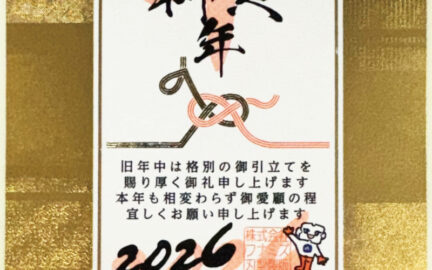 年
旧年中は格別の御引立てを
賜り厚く御礼申し上げます
本年も相変わらず御愛顧の程
宜しくお願い申し上げます
2026
株式会社